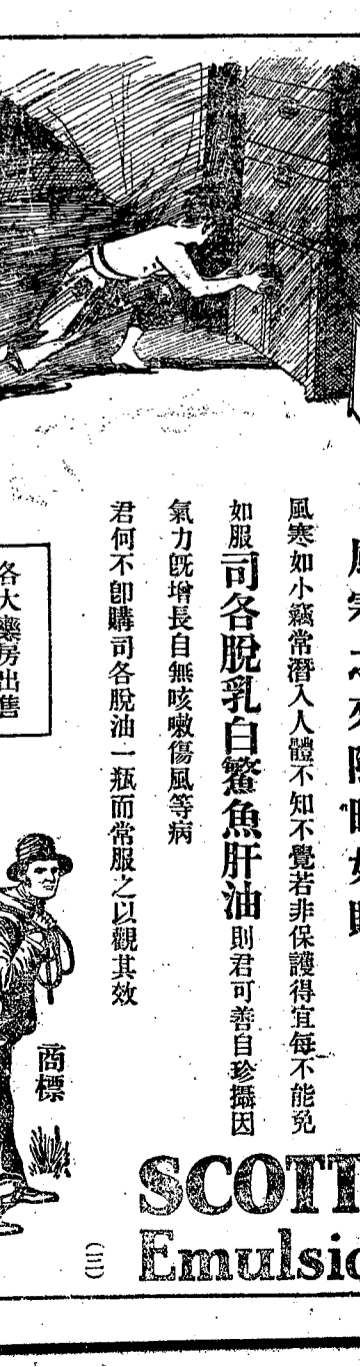 風寒如小竊常潛入人體不知不覺若非保護得宜每不能免
如服司各脫乳白鰵魚肝油則君可善自珍攝因
氣力旣增長自無咳嗽傷風等病
君何不卽購司各脫油一瓶而常服之以觀其效
各大藥房出售
商標
SCOTT
Emulsio
(三)